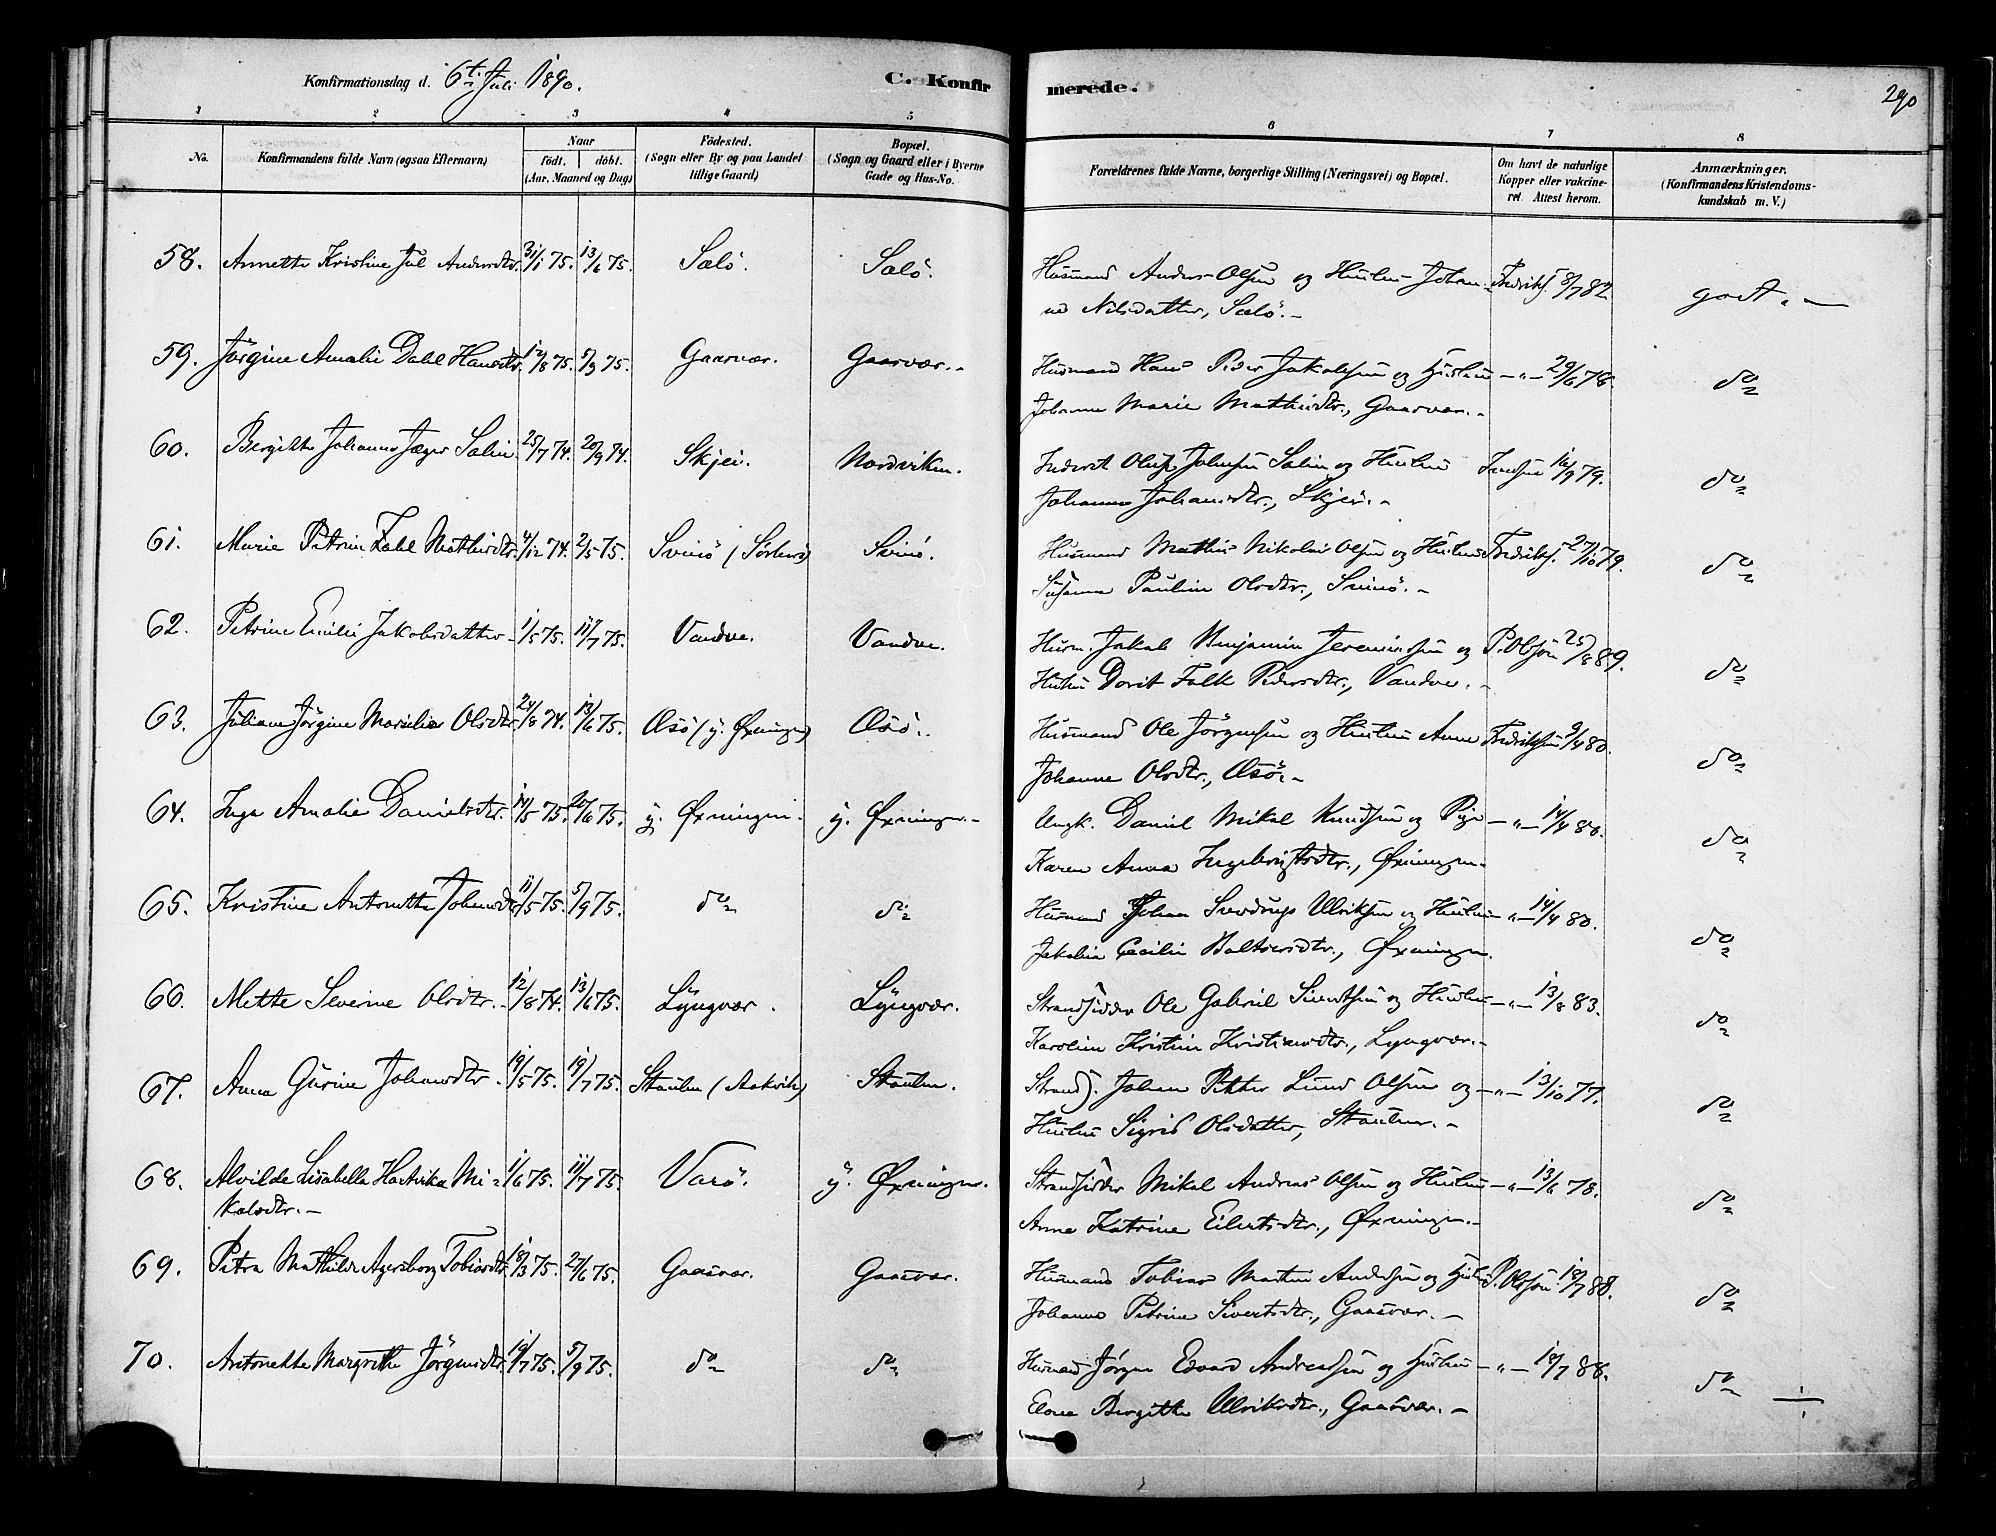 Konfirmationsdag d. 6te Juli 1890.
C. Konfirmerede.
290
1 2 3 4 5 6 7 8
No.
Konfirmandens fulde Navn (ogsaa Efternavn)
Naar
födt. döbt.
(Aar, Maaned og Dag)
Födested.
(Sogn eller By og paa Landet
tillige Gaard)
Bopæl.
(Sogn og Gaard eller i Byerne
Gade og Hus-No.
Forældrenes fulde Navne, borgerlige Stilling (Næringsvei) og Bopæl.
Om havt de naturlige
Kopper eller vakcine-
ret. Attest herom.
Anmærkninger.
(Konfirmandens Kristendoms-
kundskab m. V.)
58. Annette Kristine Jul Andersdtr. 31/1 75. 13/6 75. Salö. Salö. Husmand Anders Olsen og Hustru Johan- Fredriks. 8/7 82. godt. —
ne Nilsdatter, Salö. —
59. Jörgine Amalie Dahl Hansdtr. 12/8 75. 5/9 75. Gaasvær. Gaasvær. Husmand Hans Peder Jakobsen og Hustru —"— 29/6 78. do
Johanna Marie Mathisdtr., Gaasvær. —
60. Bergitte Johanna Jæger Salin 25/7 74. 20/9 74. Skjei. Nordviken. Inderst Oluf Johnsen Salin og Hustru Jensen 16/9 79. do
Johanna Johansdtr., Skjei. —
61. Marie Petrine Zahl Mathisdtr. 4/12 74. 2/5 75. Svinö (Sörherö) Svinö. Husmand Mathis Nikolai Olsen og Hustru Fredriks. 27/10 79. do
Susanna Pauline Olsdtr., Svinö. —
62. Petrine Emilie Jakobsdatter 1/5 75. 11/7 75. Vandve. Vandve. Husm. Jakob Benjamin Jeremiassen og P. Olsson 25/8 89. do
Hustru Dorit Falk Pedersdtr., Vandve. —
63. Juliane Jörgine Marselia Olsdtr. 24/8 74. 13/6 75. Æsö (y. Øxningen) Æsö. Husmand Ole Jörgensen og Hustru Anne Fredriksen 9/4 80. do
Johanne Olsdtr., Æsö. —
64. Inga Amalie Danielsdtr. 14/5 75. 20/6 75. y. Øxningen. y. Øxningen. — Ungk. Daniel Mikal Knudsen og Pige —"— 14/4 80. do
Karen Anna Ingebrigtsdtr., Øxningen.
65. Kristine Antonette Johansdtr. 11/5 75. 5/9 75. do do Husmand Johan Sverdrup Ulriksen og Hustru —"— 14/4 80. do
Jakobia Cecilie Baltsersdtr., Øxningen.
66. Mette Severine Olsdtr. 12/8 74. 13/6 75. Lyngvær. Lyngvær. Strandsidder Ole Gabriel Sivertsen og Hustru —"— 13/8 83. do
Karoline Kristine Kristiansdtr., Lyngvær. —
67. Anna Gurine Johansdtr. 19/5 75. 19/7 75. Staulen (Aakvik) Staulen. Strands. Johan Petter Lund Olsen og —"— 13/10 77. do
Hustru Sigrid Olsdatter, Staulen. —
68. Alvilde Lisabella Hartvikа Mi- 1/6 75. 11/7 75. Varö. y. Øxningen. Strandsidder Mikal Andreas Olsen og Hustru —"— 13/6 78. do
kalsdtr. — Anne Katrine Eilertsdtr., Øxningen. —
69. Petra Mathilde Agersborg Tobiasdtr. 18/3 75. 27/6 75. Gaasvær. Gaasvær. Husmand Tobias Martin Andersen og Hustru P. Olsson 18/7 88. do
Johanna Petrine Sivertsdtr., Gaasvær. —
70. Antonette Margrethe Jörgensdtr. 19/7 75. 5/9 75. do do Husmand Jørgen Edvard Andreassen og Hustru —"— 18/7 88. do
Elena Bergitte Ulriksdtr., Gaasvær. —